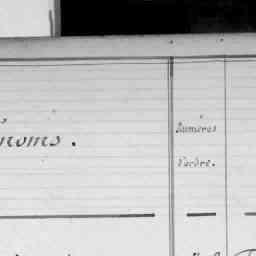 noms.
Numéros
d'ordre.